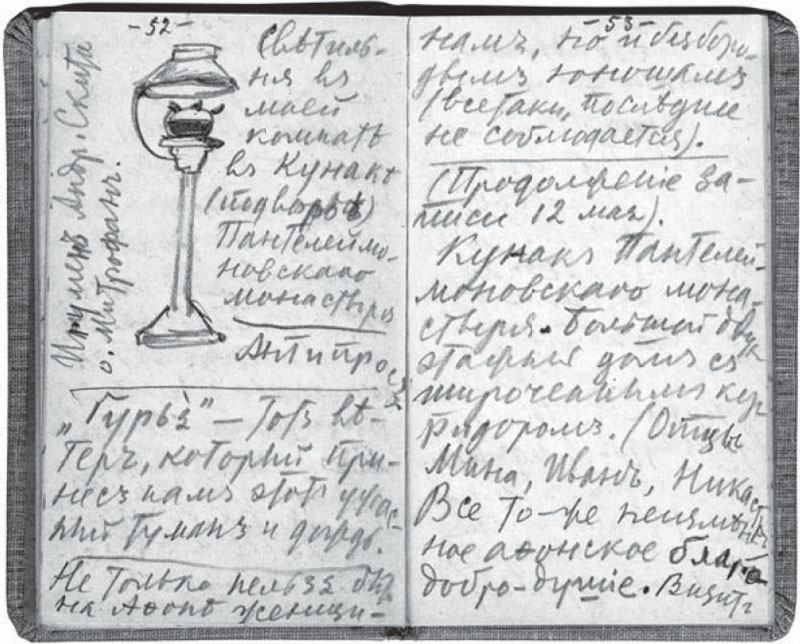 -52-
Игуменъ Андр. Скита
о. Митрофанъ.
Свѣтиль-
ня въ
моей
комнатѣ
въ Кунакѣ
(подворьѣ)
Пантелеймо-
новскаго
монастыря
Антипрос
„Гурьѣ" — тотъ вѣ-
теръ, который при-
несъ намъ этотъ ужас-
ный туманъ и дождь.
Не только нельзя быть
на Афонѣ женщи-
-53-
намъ, но и безборо-
дымъ юношамъ
(всетаки, послѣднее
не соблюдается).
(Продолженіе за-
писи 12 мая).
Кунакъ Пантелей-
моновскаго мона-
стыря. Большой двух-
этажный домъ съ
широченнымъ кор-
ридоромъ. (Отцы
Мина, Иванъ, Никастр
Все то-же неизмѣн-
ное афонское благо
добро-душіе. Визитъ